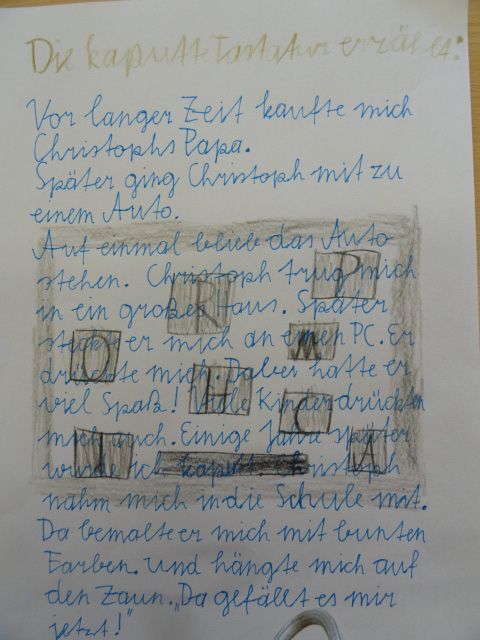 Die kaputte Tastatur erzählt:
Vor langer Zeit kaufte mich
Christophs Papa.
Später ging Christoph mit zu
einem Auto.
Auf einmal blieb das Auto
stehen. Christoph trug mich
in ein großes Haus. Später
steckte er mich an einen PC. Er
drückte mich. Dabei hatte er
viel Spaß! Viele Kinder drückten
mich auch. Einige Jahre später
wurde ich kaputt. Christoph
nahm mich in die Schule mit.
Da bemalte er mich mit bunten
Farben. und hängte mich auf
den Zaun. „Da gefällt es mir
jetzt!"
P
R
O
M
H
C
I
A